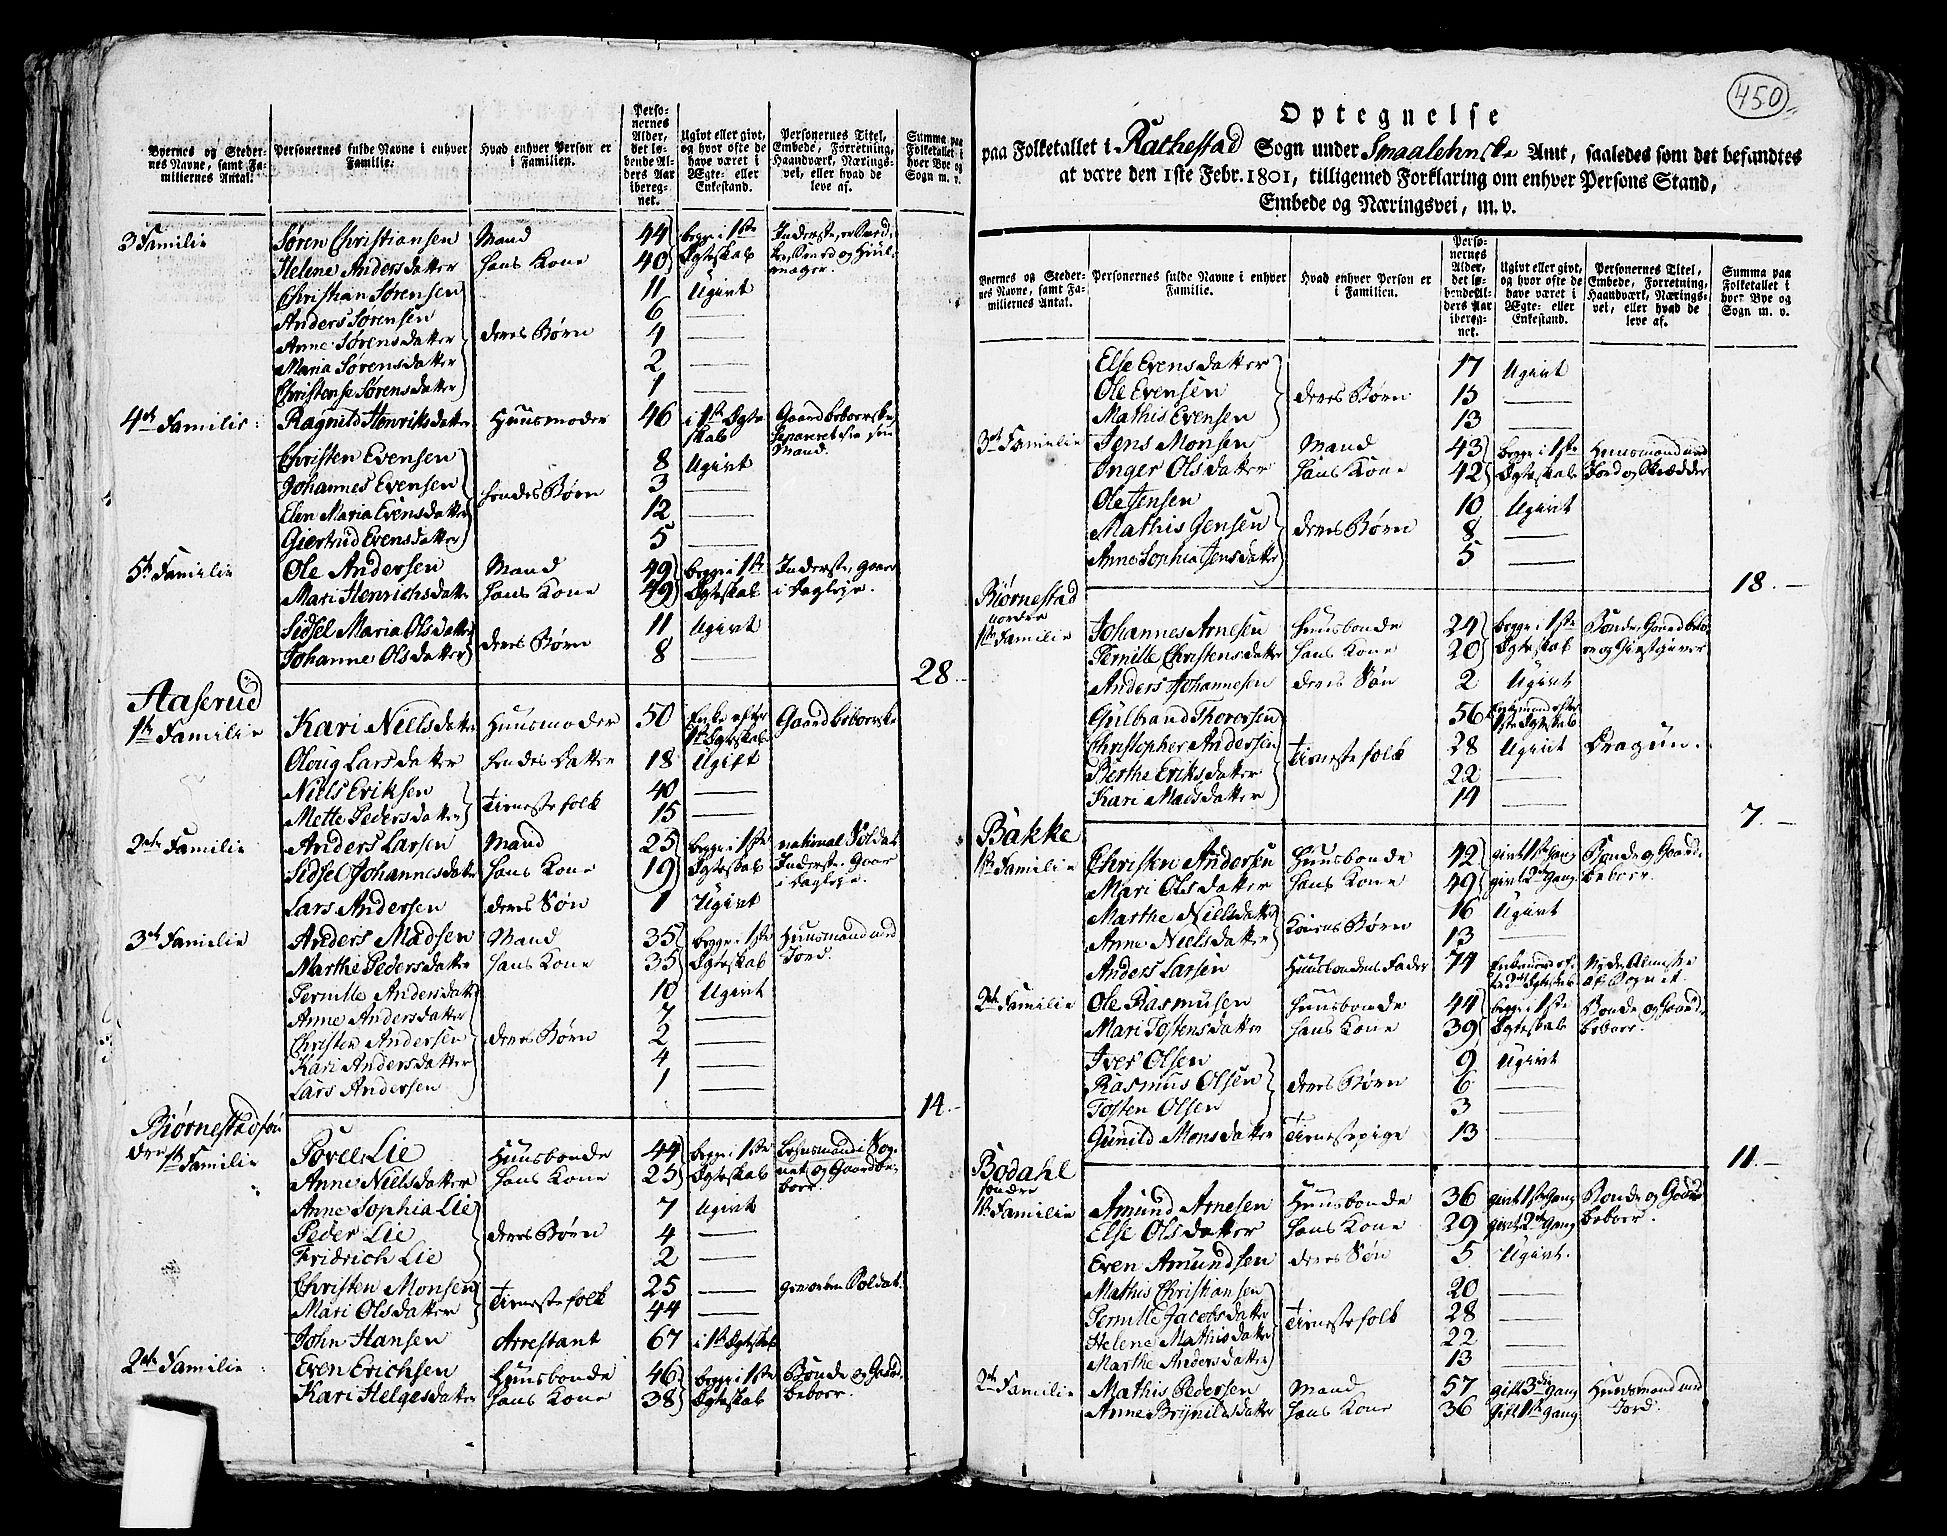 Byernes og Steder-
nes Navne, samt Fa-
miliernes Antal.
Personernes fulde Navne i enhver
Familie.
Hvad enhver Person er
i Familien.
Perso-
nernes
Alder,
det lø-
bende Al-
ders Aar
ibereg-
net.
Ugivt eller givt,
og hvor ofte de
have været i
Ægte- eller
Enkestand.
Personernes Titel,
Embede, Forretning,
Haandværk, Nærings-
vei, eller hvad de
leve af.
Summa paa
Folketallet i
hver Bye og
Sogn m. v.
3 Familie Søren Christiansen Mand 44 begge i 1ste
Helene Andersdatter hans Kone 40 Ægteskab
Christian Sørensen 11 Ugivt
Anders Sørensen 6 —
Anne Sørensdatter deres Børn 4 —
Maria Sørensdatter 2 —
Christense Sørensdatter 1 —
4de Familie Ragnild Henriksdatter Huusmoder 46 i 1ste Ægte- Gaardbeboerske
skab Mand.
Christen Evensen 8 Ugivt
Johannes Evensen hendes Børn 3 —
Elen Maria Evensdatter 12 —
Giertrud Evensdatter 5 —
5te Familie Ole Andersen Mand 49 begge i 1ste Inderste, gaaer
Mari Henrichsdatter hans Kone 49 Ægteskab i Dagleje.
Sidsel Maria Olsdatter deres Børn 11 Ugivt
Johanne Olsdatter 8 —
28
Aaserud
1te Familie Kari Nielsdatter Huusmoder 50 Enke efter Gaardbeboerske
1ste Ægteskab
Oloug Larsdatter hendes Datter 18 Ugift
Niels Eriksen Tienestefolk 40 —
Mette Pedersdatter 15 —
2de Familie Anders Larsen Mand 25 begge i 1ste national Soldat
Sidsel Johannesdatter hans Kone 19 Ægteskab Inderste, Gaaer
i Dagleje.
Lars Andersen deres Søn 1 Ugivt
3de Familie Anders Madsen Mand 35 begge i 1ste Huusmand med
Marthe Pedersdatter hans Kone 35 Ægteskab Jord.
Pernille Andersdatter 10 Ugivt
Anne Andersdatter 7 —
Christen Andersen deres Børn 2 —
Kari Andersdatter 4 —
Lars Andersen 1 —
14.—
Biørnestad søn-
dre
1te Familie Povel Lie Huusbonde 44 begge i 1ste Lehnsmand i Sog-
Anne Nielsdatter hans Kone 25 Ægteskab net og Gaardbe-
boer.
Anne Sophia Lie 7 Ugivt
Peder Lie deres Børn 4 —
Fridrich Lie 2 —
Christen Monsen Tienestefolk 25 — gevorben Soldat.
Mari Olsdatter 44 —
John Hansen Arrestant 67 i 1ste Ægteskab
2de Familie Even Erichsen Huusbonde 46 begge i 1ste Bonde og Gaard-
Kari Helgesdatter hans Kone 38 Ægteskab beboer.
450
Optegnelse
paa Folketallet i Rakkestad Sogn under Smaalehnske Amt, saaledes som det befandtes
at være den 1ste Febr. 1801, tilligemed Forklaring om enhver Persons Stand,
Embede og Næringsvei, m. v.
Byernes og Steder-
nes Navne, samt Fa-
miliernes Antal.
Personernes fulde Navne i enhver
Familie.
Hvad enhver Person er
i Familien.
Perso-
nernes
Alder,
det lø-
bende Al-
ders Aar
ibereg-
net.
Ugivt eller givt,
og hvor ofte de
have været i
Ægte- eller
Enkestand.
Personernes Titel,
Embede, Forretning,
Haandværk, Nærings-
vei, eller hvad de
leve af.
Summa paa
Folketallet i
hver Bye og
Sogn m. v.
Else Evensdatter 17 Ugivt
Ole Evensen deres Børn 15 —
Mathis Evensen 13 —
3de Familie Jens Monsen Mand 43 begge i 1ste Huusmand med
Inger Olsdatter hans Kone 42 Ægteskab Jord og Skrædder
Ole Jensen 10 Ugivt
Mathis Jensen deres Børn 8 —
Anne Sophia Jensdatter 5 —
18.—
Biørnestad
nordre
1te Familie Johannes Arnesen Huusbonde 24 begge i 1ste Bonde, Gaardbebo-
Pernille Christensdatter hans Kone 20 Ægteskab er og Giestgiver
Anders Johannesen deres Søn 2 Ugivt
Gulbrand Thorersen 56 Enkemand efter
1ste Ægteskab
Christopher Andersen Tienestefolk 28 Ugivt Dragun.
Berthe Eriksdatter 22 —
Kari Madsdatter 14 —
7.—
Bakke
1te Familie Christen Andersen Huusbonde 42 givt 1ste Gang Bonde og Gaard-
Mari Olsdatter hans Kone 49 givt 2den Gang beboer.
Marthe Nielsdatter Konens Børn 16 Ugivt
Anne Nielsdatter 13 —
Anders Larsen Huusbondens Fader 74 Enkemand ef-
2de Familie Ole Rasmusen Huusbonde 44 begge i 1ste Bonde og Gaard-
Mari Tostensdatter hans Kone 39 Ægteskab beboer.
Iver Olsen 9 Ugivt
Rasmus Olsen deres Børn 6 —
Tosten Olsen 3 —
Gunild Monsdatter Tienestepige 13 —
11.—
Bodahl
søndre
1te Familie Amund Arnesen Huusbonde 36 givt 1ste Gang Bonde og Gaard-
Else Olsdatter hans Kone 29 givt 2den Gang beboer.
Even Amundsen deres Søn 5 Ugivt.
Mathis Christiansen 20 —
Pernille Jacobsdatter Tienestefolk 28 —
Helene Mathisdatter 22 —
Marthe Andersdatter 13 —
2de Familie Mathis Pedersen Mand 57 gift 3die Gang Huusmand med
Anne Brynildsdatter hans Kone 36 gift 1ste Gang Jord.